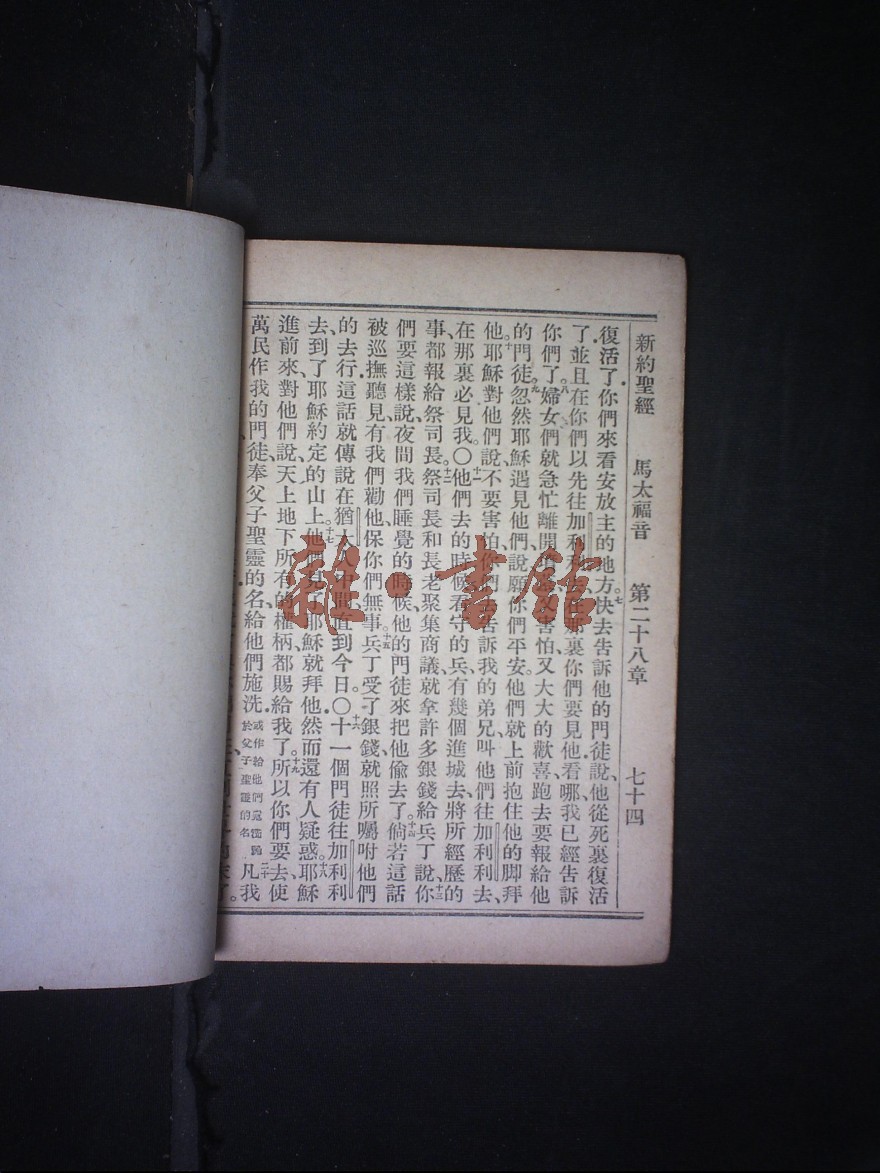 新約聖經 馬太福音 第二十八章 七十四
復活了、你們來看安放主的地方。七快去告訴他的門徒說、他從死裏復活
了、並且在你們以先往加利利去、在那裏你們要見他、看哪、我已經告訴
你們了。八婦女們就急忙離開墳墓、又害怕、又大大的歡喜、跑去要報給他
的門徒。九忽然耶穌遇見他們、說、願你們平安。他們就上前抱住他的脚拜
他。十耶穌對他們說、不要害怕、你們去告訴我的弟兄、叫他們往加利利去、
在那裏必見我。〇十一他們去的時候、看守的兵、有幾個進城去、將所經歷的
事、都報給祭司長。十二祭司長和長老聚集商議、就拿許多銀錢給兵丁說、十三你
們要這樣說、夜間我們睡覺的時候、他的門徒來把他偷去了。十四倘若這話
被巡撫聽見、有我們勸他、保你們無事。十五兵丁受了銀錢、就照所囑咐他們
的去行、這話就傳說在猶太人中間、直到今日。〇十六十一個門徒往加利利
去、到了耶穌約定的山上。十七他們見了耶穌就拜他、然而還有人疑惑。十八耶穌
進前來、對他們說、天上地下所有的權柄、都賜給我了。十九所以你們要去使
萬民作我的門徒、奉父子聖靈的名、給他們施洗、或作給他們施洗歸於父子聖靈的名 二十凡我
雜·書館